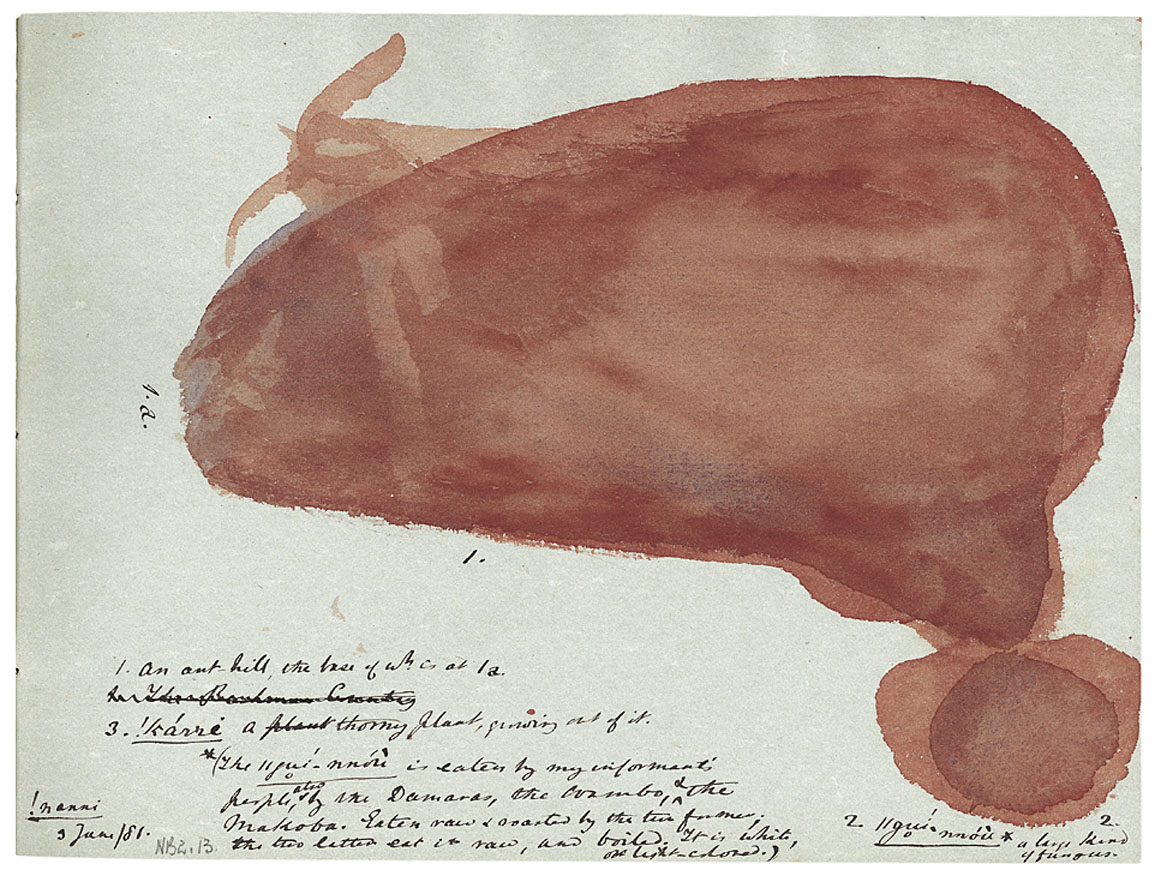 1. a.
1.
1. An ant-hill, the base of wh is at 1a.
3. !kárrĕ a plant thorny plant, growing out of it.
*(The ‖gúi-nnṍu is eaten by my informant's
people, also by the Damaras, the Ovambo, & the
Makoba. Eaten raw & roasted by the two former;
the two latter eat it raw, and boiled. It is white,
or light-colored.)
!nanni
3 June/81.
NB2.13.
2 ‖gúi-nnṍu* 2.
a large kind
of fungus.